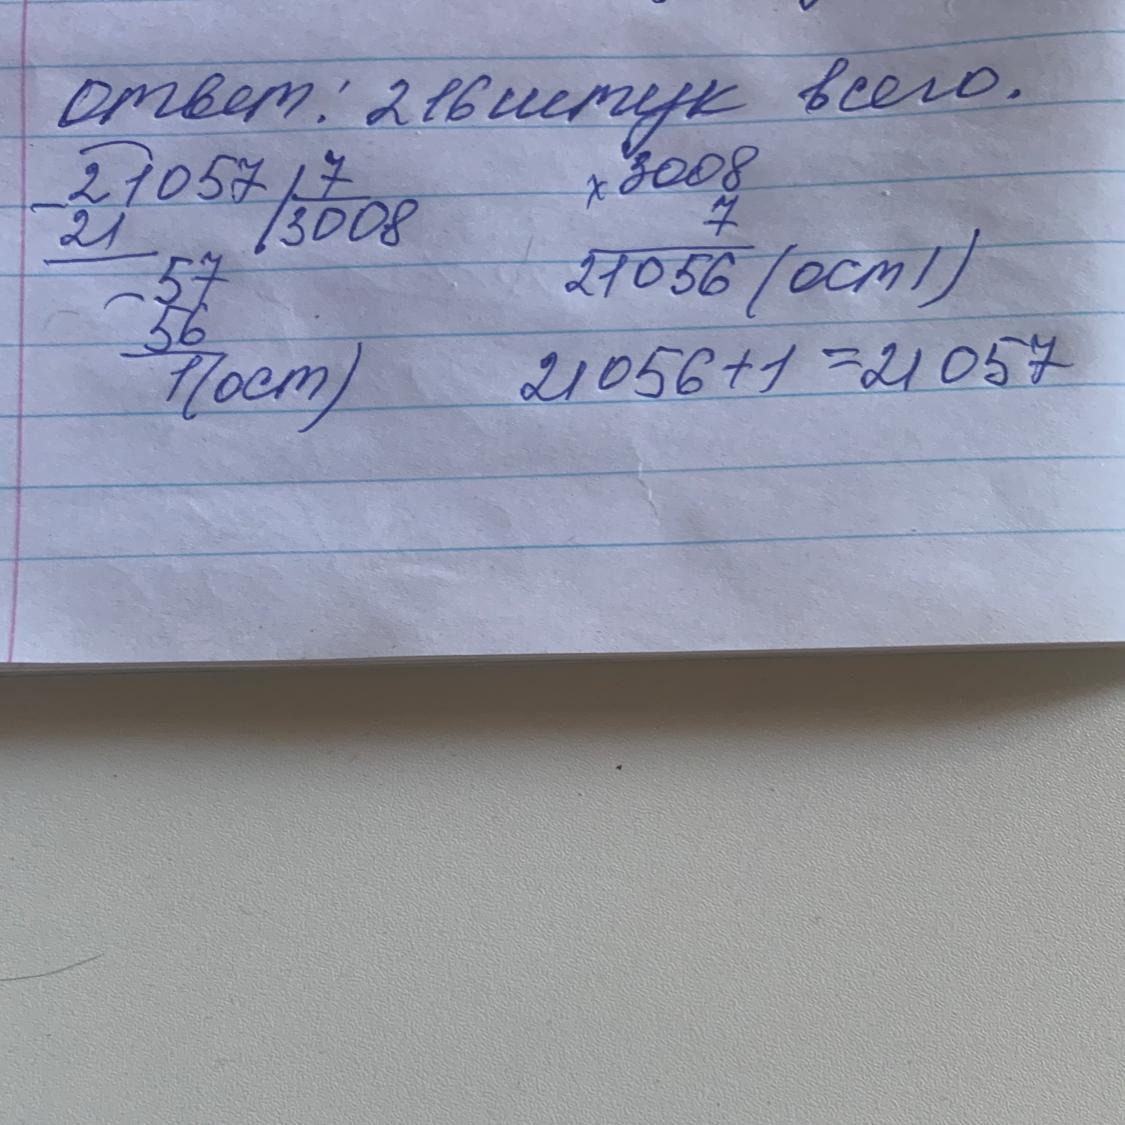 Ответ: 216 штук всего.
21057 | 7
- 21 | 3008
- 57
56
1 (ост)
× 3008
7
21056 (ост 1)
21056+1=21057